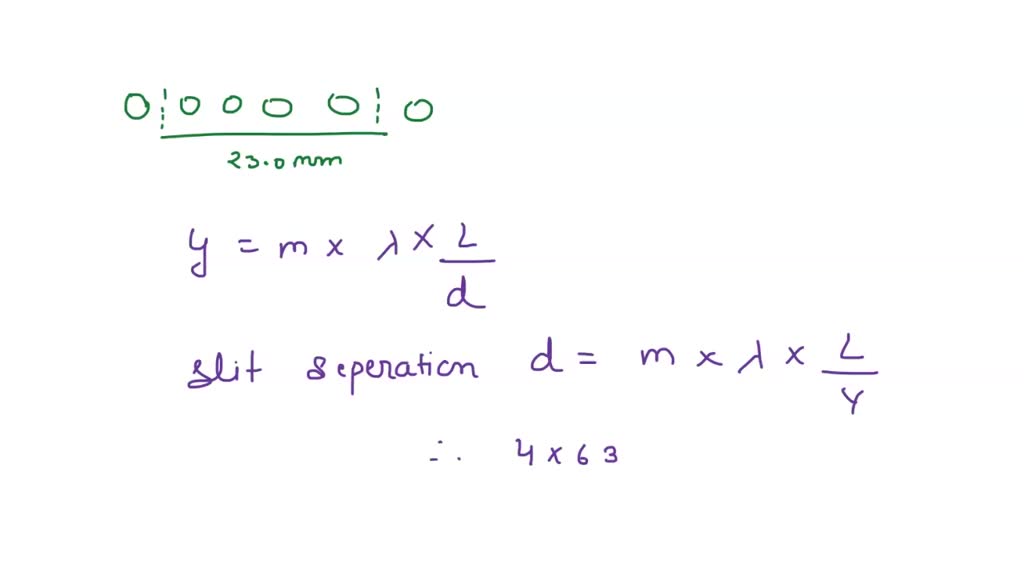 0 0 0 0 0 0
23.0 mm
y = m x λ x L/d
slit seperation d = m x λ x L/y
∴ 4 x 63